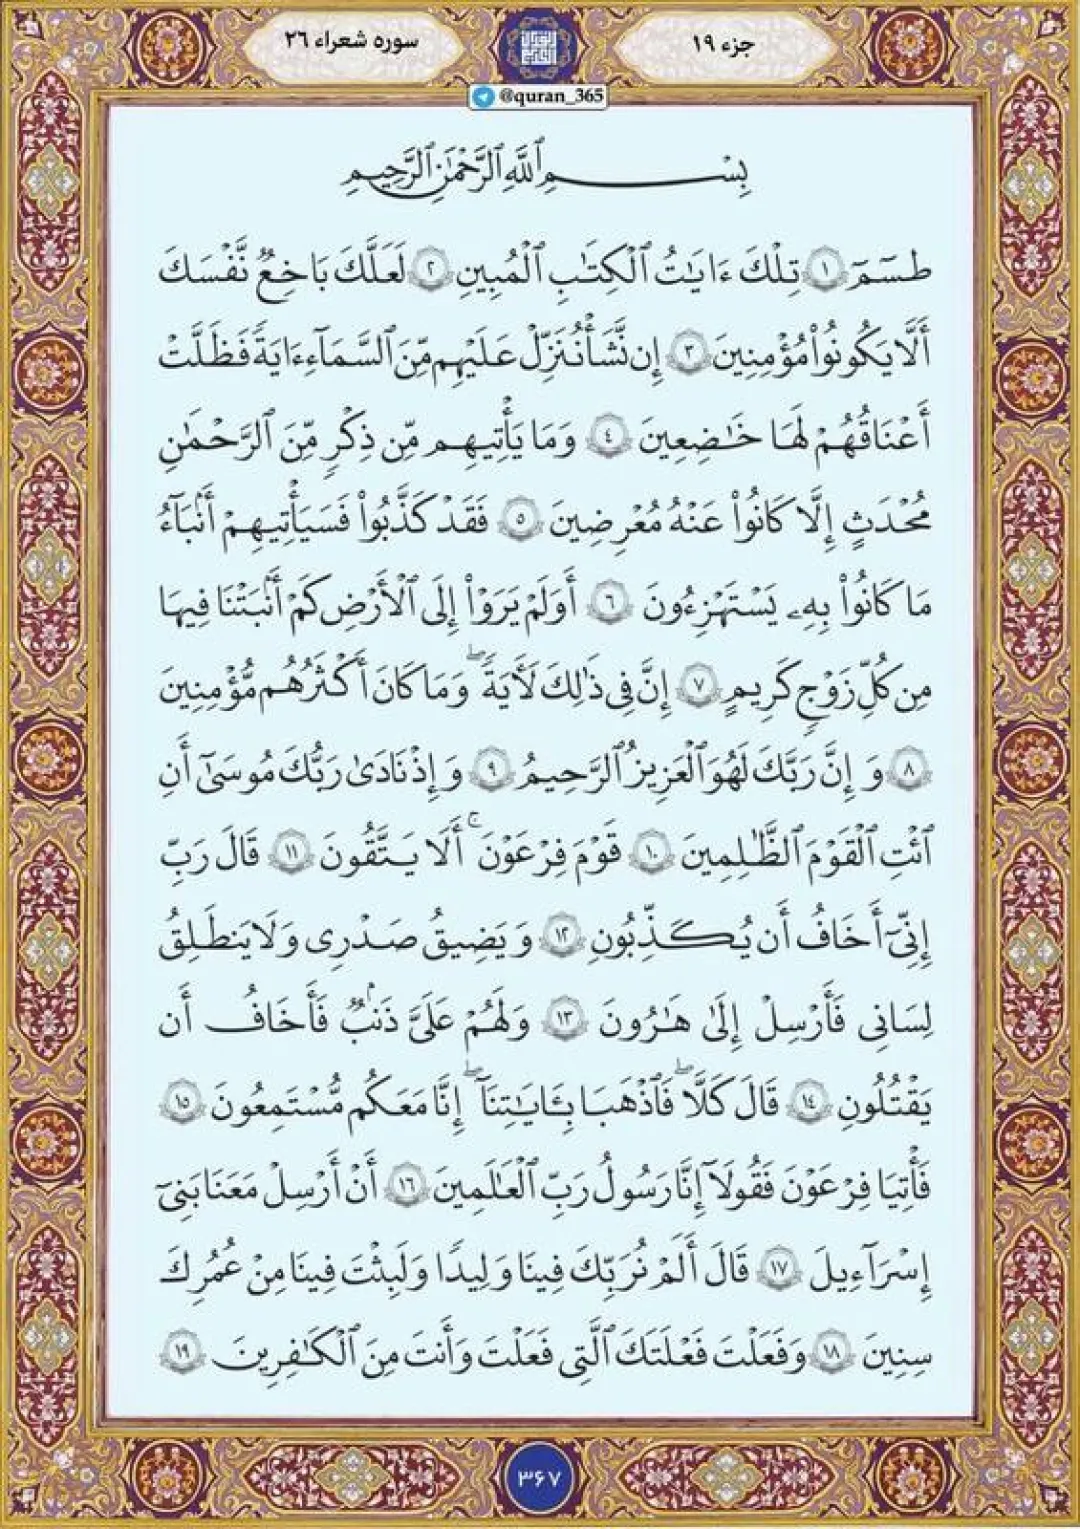 جزء ۱۹
سوره شعراء ۲۶
@quran_365
بِسْمِ ٱللَّهِ ٱلرَّحْمَٰنِ ٱلرَّحِيمِ
طسٓمٓ ١ تِلْكَ ءَايَٰتُ ٱلْكِتَٰبِ ٱلْمُبِينِ ٢ لَعَلَّكَ بَٰخِعٌ نَّفْسَكَ
أَلَّا يَكُونُوا۟ مُؤْمِنِينَ ٣ إِن نَّشَأْ نُنَزِّلْ عَلَيْهِم مِّنَ ٱلسَّمَآءِ ءَايَةً فَظَلَّتْ
أَعْنَٰقُهُمْ لَهَا خَٰضِعِينَ ٤ وَمَا يَأْتِيهِم مِّن ذِكْرٍ مِّنَ ٱلرَّحْمَٰنِ
مُحْدَثٍ إِلَّا كَانُوا۟ عَنْهُ مُعْرِضِينَ ٥ فَقَدْ كَذَّبُوا۟ فَسَيَأْتِيهِمْ أَنۢبَٰٓؤُا۟
مَا كَانُوا۟ بِهِۦ يَسْتَهْزِءُونَ ٦ أَوَلَمْ يَرَوْا۟ إِلَى ٱلْأَرْضِ كَمْ أَنۢبَتْنَا فِيهَا
مِن كُلِّ زَوْجٍ كَرِيمٍ ٧ إِنَّ فِى ذَٰلِكَ لَءَايَةً ۖ وَمَا كَانَ أَكْثَرُهُم مُّؤْمِنِينَ
٨ وَإِنَّ رَبَّكَ لَهُوَ ٱلْعَزِيزُ ٱلرَّحِيمُ ٩ وَإِذْ نَادَىٰ رَبُّكَ مُوسَىٰٓ أَنِ
ٱئْتِ ٱلْقَوْمَ ٱلظَّٰلِمِينَ ١٠ قَوْمَ فِرْعَوْنَ ۚ أَلَا يَتَّقُونَ ١١ قَالَ رَبِّ
إِنِّىٓ أَخَافُ أَن يُكَذِّبُونِ ١٢ وَيَضِيقُ صَدْرِى وَلَا يَنطَلِقُ
لِسَانِى فَأَرْسِلْ إِلَىٰ هَٰرُونَ ١٣ وَلَهُمْ عَلَىَّ ذَنۢبٌ فَأَخَافُ أَن
يَقْتُلُونِ ١٤ قَالَ كَلَّا ۖ فَٱذْهَبَا بِـَٔايَٰتِنَآ ۖ إِنَّا مَعَكُم مُّسْتَمِعُونَ ١٥
فَأْتِيَا فِرْعَوْنَ فَقُولَآ إِنَّا رَسُولُ رَبِّ ٱلْعَٰلَمِينَ ١٦ أَنْ أَرْسِلْ مَعَنَا بَنِىٓ
إِسْرَٰٓءِيلَ ١٧ قَالَ أَلَمْ نُرَبِّكَ فِينَا وَلِيدًا وَلَبِثْتَ فِينَا مِنْ عُمُرِكَ
سِنِينَ ١٨ وَفَعَلْتَ فَعْلَتَكَ ٱلَّتِى فَعَلْتَ وَأَنتَ مِنَ ٱلْكَٰفِرِينَ ١٩
۳۶۷